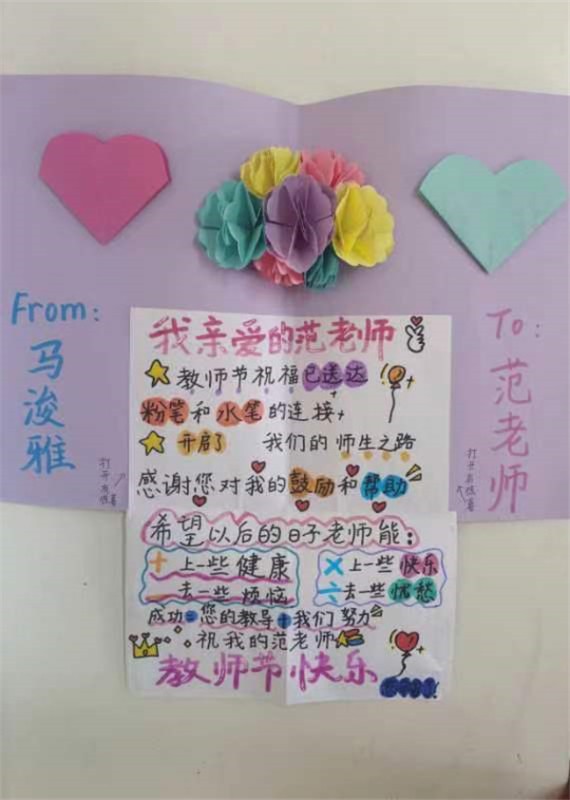 From:
马浚雅
To:
范老师
我亲爱的范老师
教师节祝福已送达
粉笔和水笔的连接,
开启了 我们的师生之路
感谢您对我的鼓励和帮助
希望以后的日子老师能:
+上一些健康 ×上一些快乐
-去一些烦恼 ÷去一些忧愁
成功=您的教导+我们努力
祝我的范老师
教师节快乐